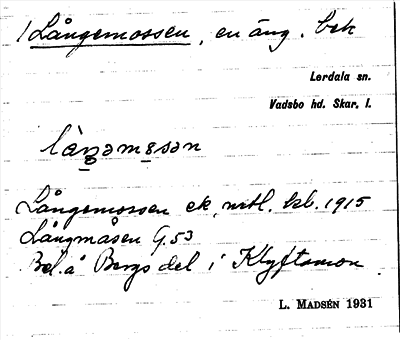 1 Långemossen, en äng. bek
Lerdala sn.
Vadsbo hd. Skar. l.
Långemossen ek, mtl. kb. 1915
Långmåsen G.53
Bel. å Bergs del i Klyftamon
L. MADSÉN 1931